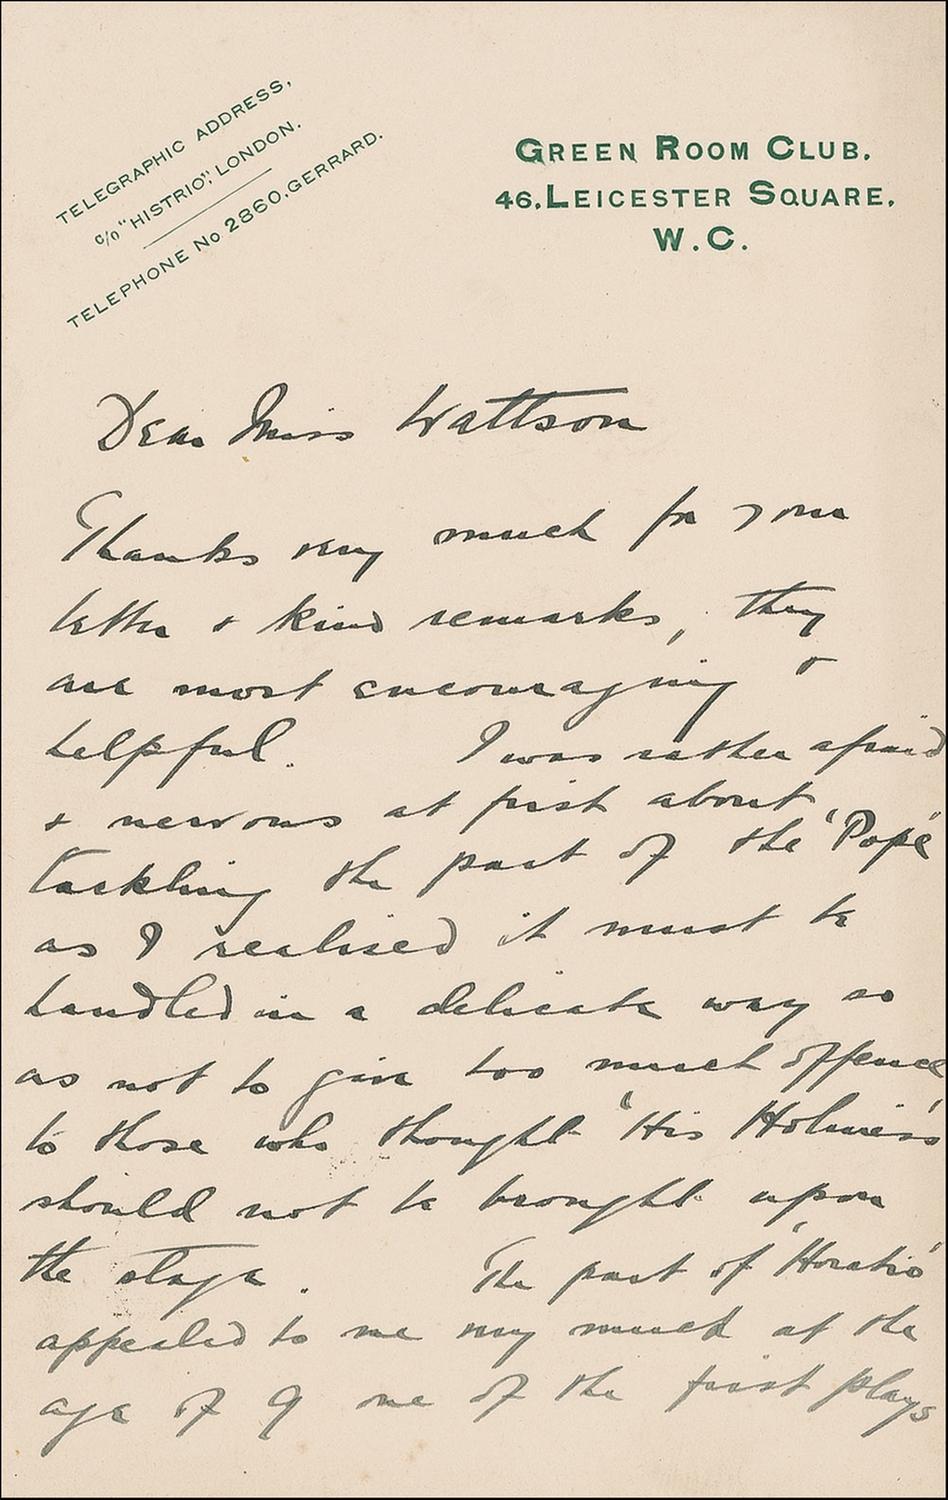 TELEGRAPHIC ADDRESS,
c/o "HISTRIO", LONDON.
TELEPHONE No 2860, GERRARD.
GREEN ROOM CLUB.
46, LEICESTER SQUARE,
W.C.
Dear Miss Wattson
Thanks very much for your
letter & kind remarks, they
are most encouraging &
helpful. I was rather afraid
& nervous at first about
tackling the part of the 'Pope'
as I realised it must be
handled in a delicate way so
as not to give too much offence
to those who thought 'His Holiness'
should not be brought upon
the stage. The part of 'Horatio'
appealed to me very much at the
age of 9 one of the first plays